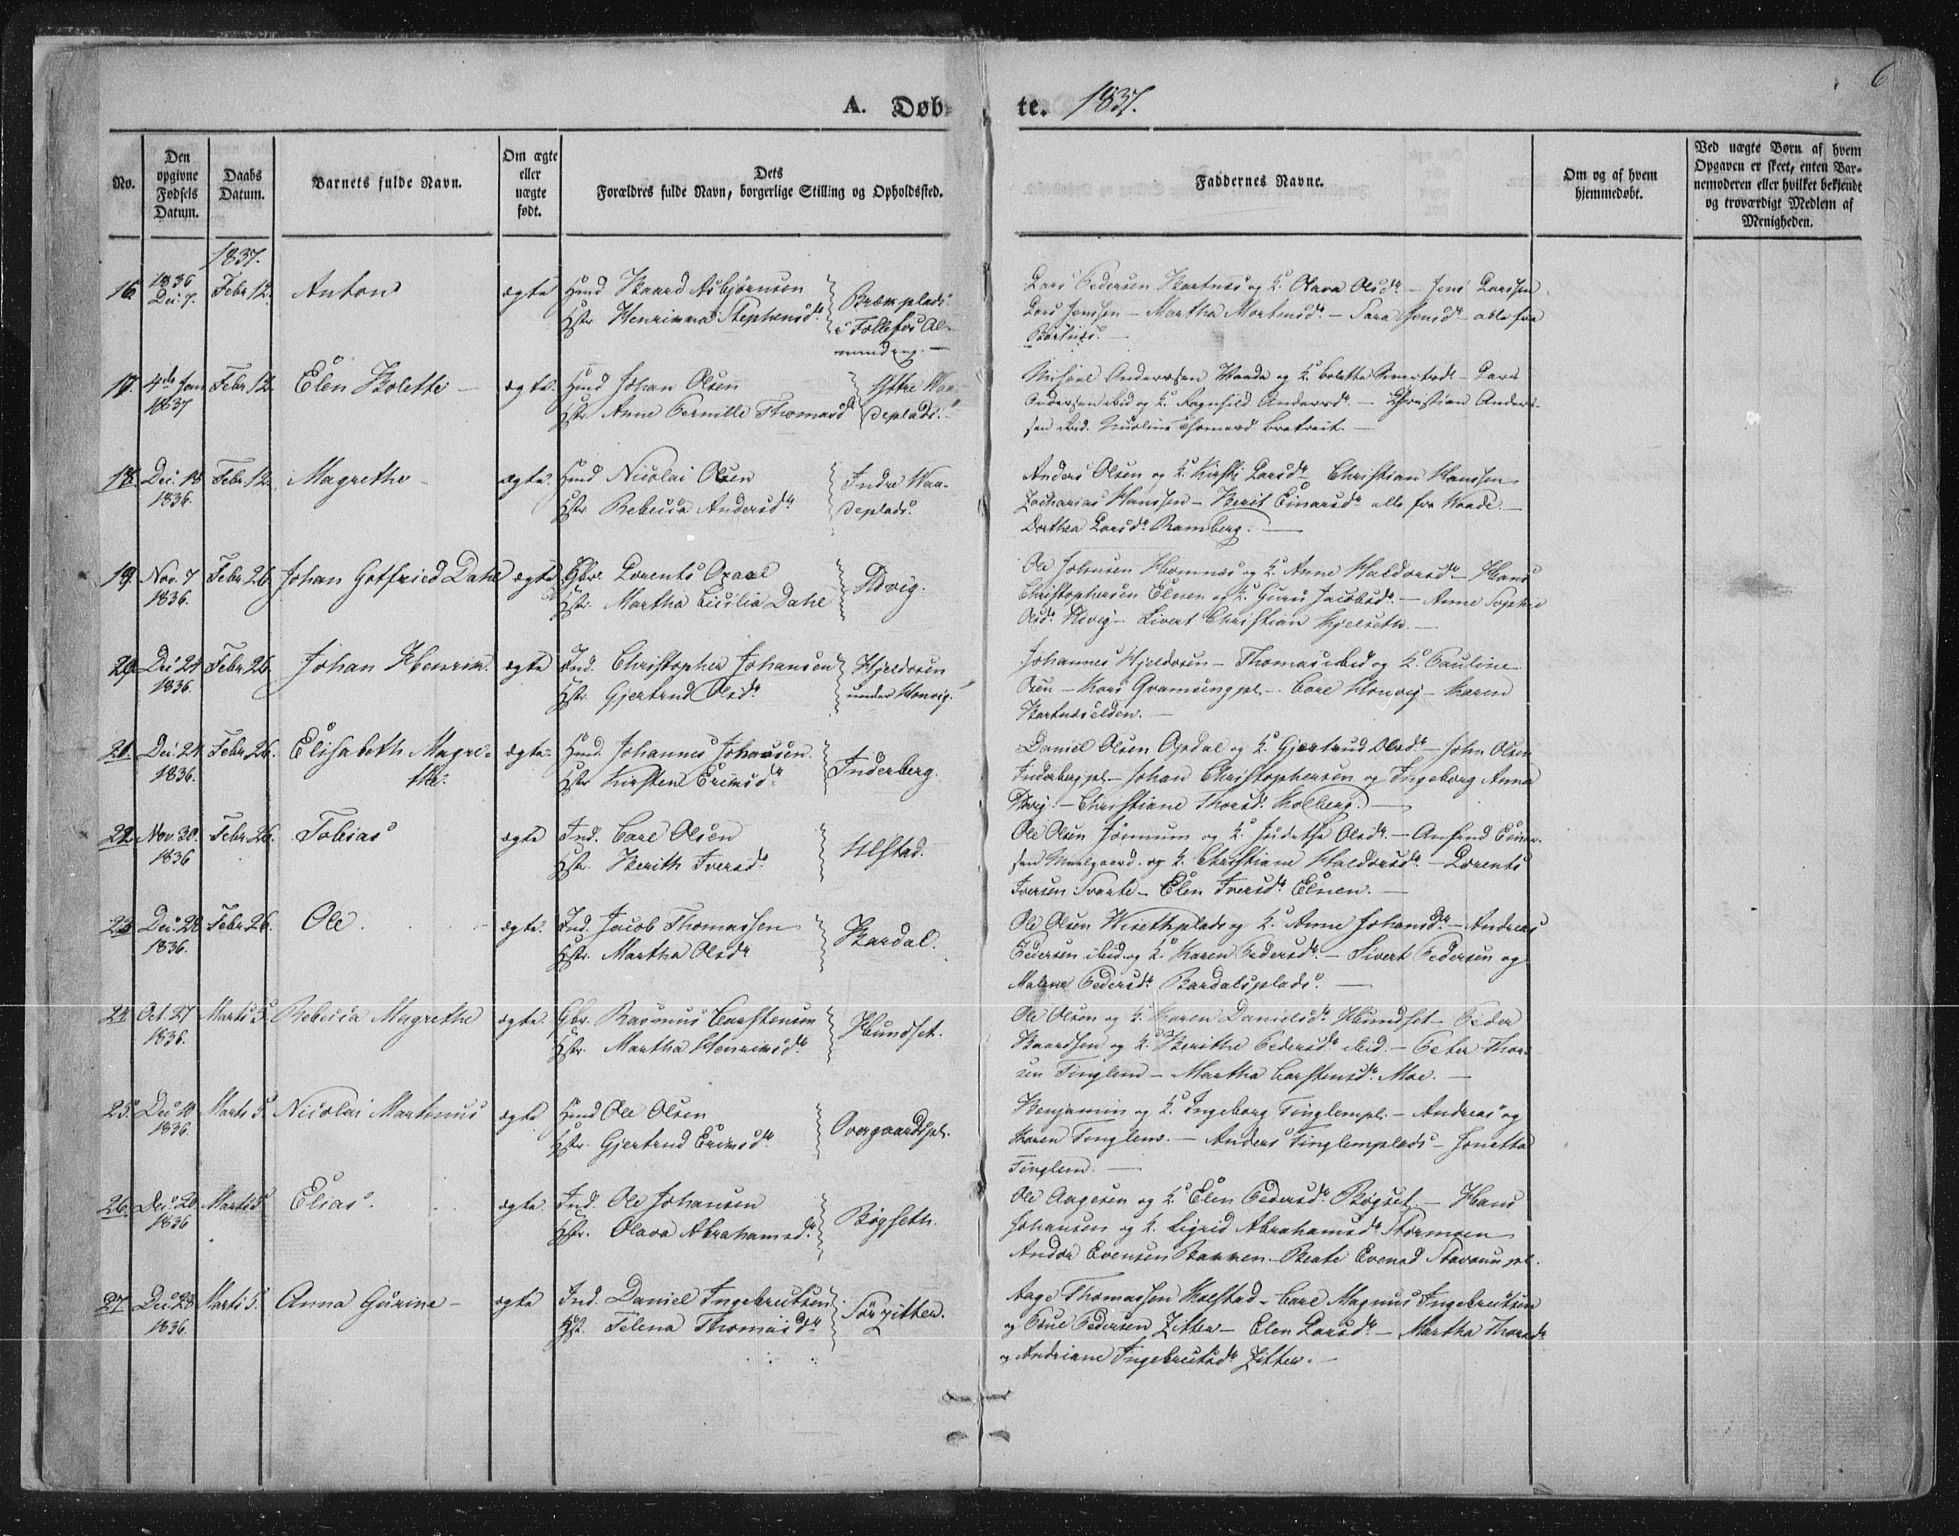 6
A. Døb- te. 1837.
No.
Den opgivne Fødsels Datum.
Daabs Datum.
Barnets fulde Navn.
Om ægte eller uægte født.
Dets Forældres fulde Navn, borgerlige Stilling og Opholdssted.
Faddernes Navne.
Om og af hvem hjemmedøbt.
Ved uægte Børn af hvem Opgaven er skeet, enten Barnemoderen eller hvilket bekjendt og troværdigt Medlem af Menigheden.
1837.
16. 1836 Dec. 7. Febr. 12. Anton ægte Hmd Baard Asbjørnsen
Hstr. Henrikka Stephensdr
Brækplads
i Follefos Al-
mending. —
Lars Pedersen Bartnes og K. Olava Olsdr — Jens Larssen
Lars Jenssen — Martha Mortensdr — Sara Jensdr — alle fra
Bartnes. —
17. 4de Jan 1837 Febr. 12. Elen Bolette — ægte. Hmd Johan Olsen
Hstr. Anne Pernille Thomasdr
Ottre Waa-
deplads. —
Michael Anderssen Waade og K. Boletta
Anderssen ibid og K. Ragnhild Andersdr. — Christian Anders-
sen ibid.
18. Dec. 18 1836. Febr. 12. Magrethe — ægte. Hmd Nicolai Olsen
Hstr. Rebecca Andersdr
Indre Waa-
deplads.
Anders Olsen og K. Kirsti Larsdr Christian Hanssen
Zacharias Hanssen — Berit Einarsdr alle fra Waade. —
Dorthea Larsdr Ramberg. —
19. Nov. 7 1836. Febr. 26 Johan Gotfried Dahl ægte Gbr. Lorents Opaal
Hstr. Martha Cicilia Dahl
Ole Johnsen Homnæs og K. Anne Haldorsdr — Hans
Christophersen Elnen og K. Guru Jacobsdr. — Anne Sophie
Olsdr — Sivert Christian Hjelseth. —
20. Dec. 24 1836. Febr. 26. Johan Henrik. ægte Ind. Christopher Johansen
Hstr. Gjertrud Olsdr
Hjeldosen
under Honvig.
Johannes Hjeldosen — Thomas ibid og K. Pauline
Olsen — Kars Qvamsengpl. — Carl Honvig — Karen
Bartnæselden. —
21. Dec. 24. 1836. Febr. 26. Elisabeth Magre-
the. ægte. Hmd. Johannes Johansen.
Hstr. Kirsten Eriksdr
Inderberg.
Daniel Olsen Opdal og K. Gjertrud Olsdr — John Olsen
Inderbergpl. — Johan Christophersen og Ingeborg Anna
— Christiane Thorsdr. Kolberg. —
22. Nov. 30. 1836 Febr. 26. Tobias ægte Ind. Carl Olsen
Hstr. Berith Iversdr
Ulstad.
Ole Olsen Jønnum og K. Olsdr. — Amfind Einar-
sen og K. Christiane Haldorsdr. — Lorents
Iversen Svarte — Elen Iversdr Elnen. —
23. Dec. 28 1836. Febr. 26. Ole. ægte. Ind. Jacob Thomassen
Hstr. Martha Olsdr
Bardal.
Ole Olsen Wisethplads og K. Anne Johansdr — Andreas
Pedersen ibid. og K. Karen Pedersdr. — Sivert Pedersen og
Malene Pedersdr Bardalsplads. —
24. Oct. 27 1836. Marts 5. Rebecca Magrethe ægte. Gbr. Rasmus Carstensen
Hstr. Martha Henriksdr
Hundset.
Ole Olsen og K. Karen Danielsdr Hundset — Peder
Baardsen og K. Berithe Pedersdr ibid. — Peter Thor-
sen Tinglem — Martha Carstensdr Moe. —
25. Dec. 10 1836. Marts 5. Nicolai Martinus ægte Hmd Ole Olsen
Hstr. Gjertrud Eriksdr
Overgaardspl.
Benjamin og K. Ingeborg Tinglempl. — Andreas og
Karen Tinglem. — Anders Tinglemplads — Jonetta
Tinglem. —
26. Dec. 20 1836 Marts 5. Elias ægte. Ind. Ole Johansen
Hstr. Olava Abrahamsdr.
Bøgseth.
Ole Aagesen og K. Elen Pedersdr Bøgset — Hans
Johansen og K. Sigrid Abrahamsdr Stormoen
Andor Evensen Bakken. Beate Evensd
27. Dec. 28 1836. Marts 5. Anna Gurine — ægte Ind. Daniel Ingebrigtsen
Hst. Telena Thomasdr
Sørzitter.
Aage Thomassen Kolstad — Carl Magnus Ingebrigtsen
og Pedersen Zitter — Elen Larsdr — Martha Thorsdr
og Andriane Ingebrigtsdr Zitter. —